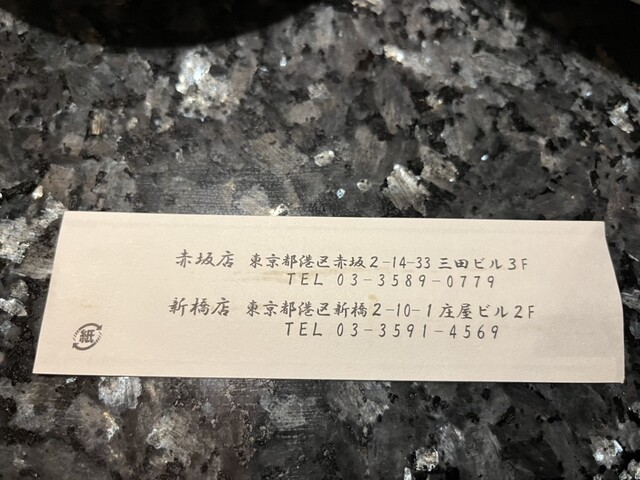 赤坂店 東京都港区赤坂2-14-33 三田ビル3F
TEL 03-3589-0779
新橋店 東京都港区新橋2-10-1 庄屋ビル2F
TEL 03-3591-4569
紙